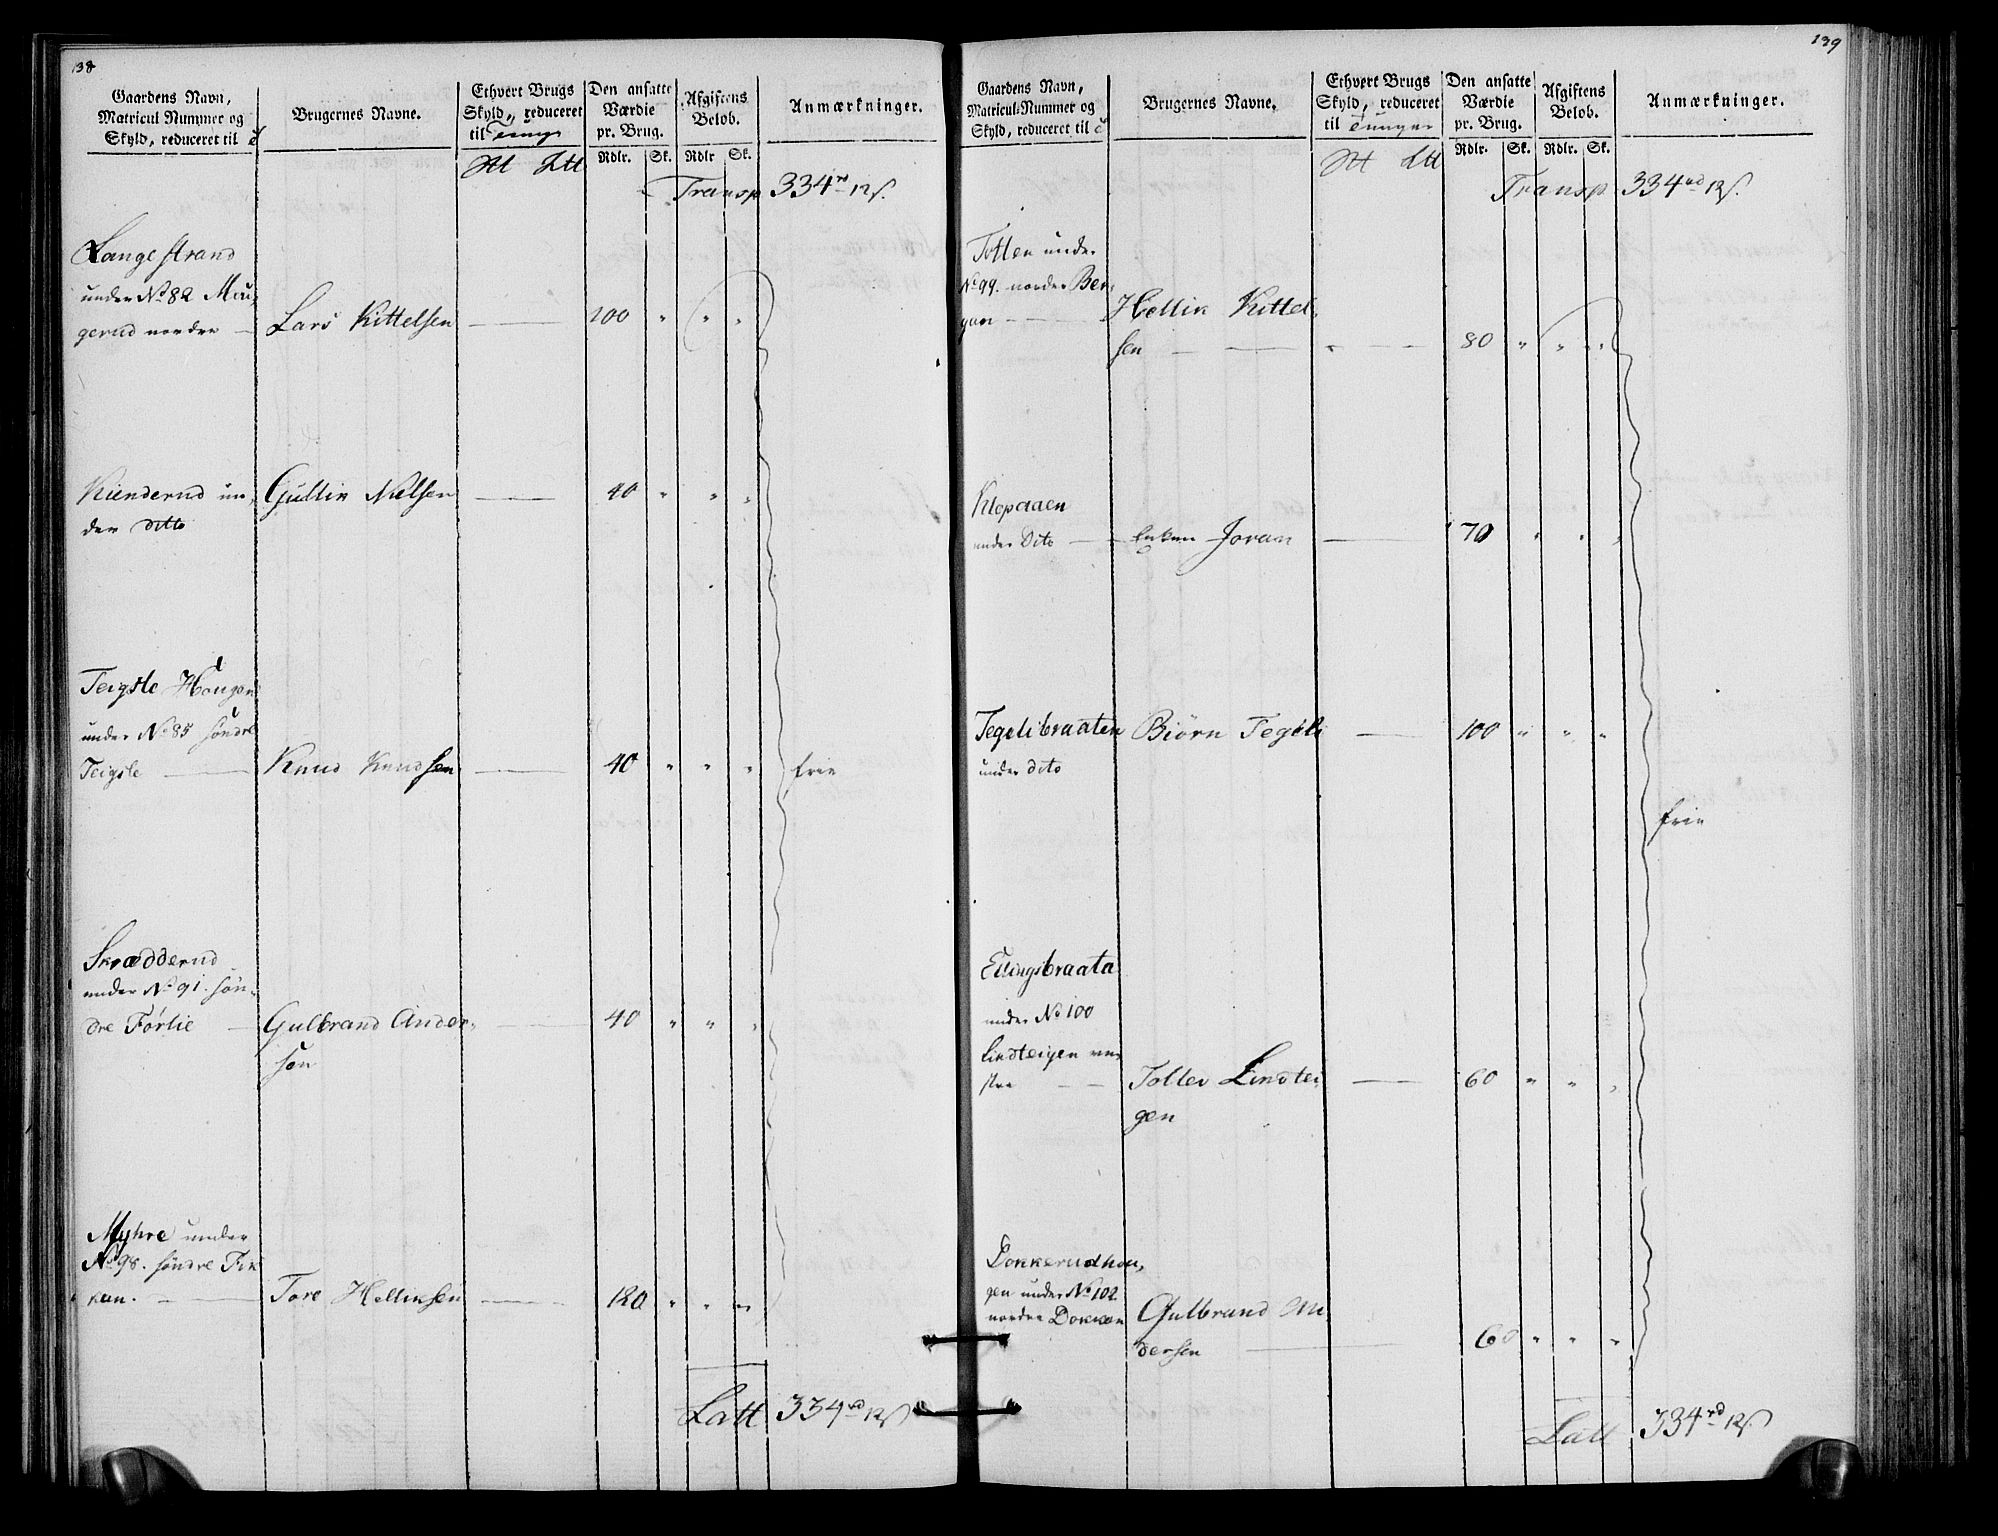 138
Gaardens Navn,
Matricul Nummer og
Skyld, reduceret til
Brugernes Navne.
Ethvert Brugs
Skyld, reduceret
til Tunge
Den ansatte
Værdie
pr. Brug.
Afgiftens
Beløb.
Anmærkninger.
Rdlr. Sk. Rdlr Sk.
Transp 334 rd 12 s.
Langestrand
under No 82 Mou-
gerud nordre — Lars Kittelsen — 100 " " "
Kienderud un- Gullik Nielsen — 40 " " "
der ditto
Teigsle Haugen
under No 85 söndre
Teigsle — Knud Knudsen — 40 " " " frie
Skrædderud
under No 91. sön-
dre Førlie — Gulbrand Ander- — 40 " " "
sön
Myhre under
No 98. söndre Fik-
kan. — Tore Helliksen — 120 " " "
Latt 334 rd 12 s
139
Gaardens Navn,
Matricul-Nummer og
Skyld, reduceret til
Brugernes Navne.
Ethvert Brugs
Skyld, reduceret
til Tunger
Den ansatte
Værdie
pr. Brug.
Afgiftens
Beløb.
Anmærkninger.
Rdlr. Sk. Rdlr. Sk.
Transp 334 rd 12 s.
Tollen under
No 99. nordre Ber-
gan — Hellik Kittel-
sen — 80 " " "
Klopaaen
under Dito — Enken Joran — 70 " " "
Tegslibraaten Biörn Tegsli — 100 " " "
under dito
frie
Ellingsbraata
under No 100
Lindteigen ve-
stre — Tollev Lindtei- — 60 " " "
gen
Dokkerudhou-
gen under No 102
nordre Dokken Gulbrand An-
dersen — 60 " " "
Latt 334 rd 12 s.